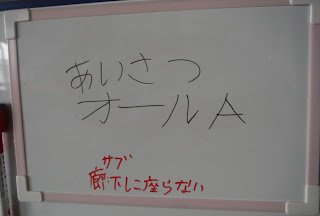 あいさつ
オールA
サブ
廊下に座らない